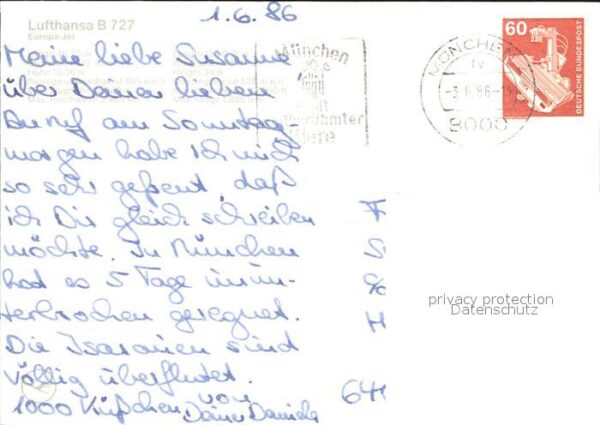 1.6.86
Lufthansa B 727
Europa Jet
Meine liebe Susanne
über Deinen lieben
Anruf am Sonntag-
morgen habe ich mich
so sehr gefreut, daß
ich Dir gleich schreiben
möchte. In München
hat es 5 Tage inun-
terbrochen geregnet.
Die Isarauen sind
völlig überflutet.
1000 Küßchen von
Deiner Daniela
München
berühmter
Biere
MÜNCHEN
-3.6.86-
8000
60
DEUTSCHE BUNDESPOST
F
S
H
641
privacy protection
Datenschutz